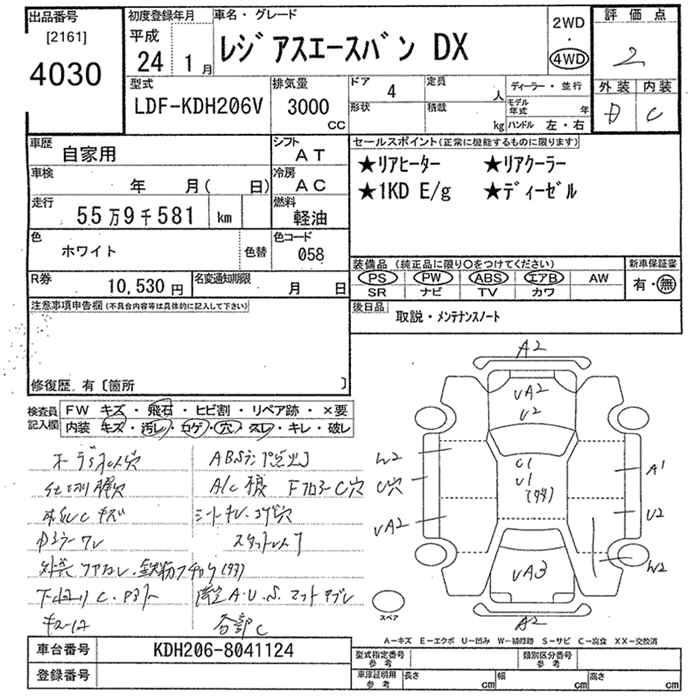 出品番号
[2161]
4030
初度登録年月
平成
24年 1月
車名・グレード
レジアスエースバン DX
2WD
・
4WD
評価点
2
外装 内装
D C
型式
LDF-KDH206V
排気量
3000
CC
ドア
4
定員
人
形状
積載
kg
ディーラー・並行
モデル年式 年
ハンドル 左・右
車歴
自家用
シフト
AT
車検
年 月( 日)
冷房
AC
走行
55万9千581 km
燃料
軽油
色
ホワイト
色替
色コード
058
R券
10,530円
名変通知期限
月 日
セールスポイント(正常に機能するものに限ります)
★リアヒーター ★リアクーラー
★1KD E/g ★ディーゼル
装備品(純正品に限り○をつけてください)
PS PW ABS エアB AW
SR ナビ TV カワ
新車保証書
有・無
後日品
取説・メンテナンスノート
注意事項申告欄(不具合内容等は具体的に記入して下さい)
修復歴 有〔箇所 〕
検査員
記入欄
FW キズ・飛石・ヒビ割・リペア跡・×要
内装 キズ・汚レ・コゲ・穴・スレ・キレ・破レ
ABSランプ点出
A/C
シートキレ、コゲ穴
C
A.U.S.
各部C
A2
UA2
U2
C1
U1
UA3
A2
W2
C穴
UA2
A1
U2
W2
スペア
A-キズ E-エクボ U-凹み W-補修跡 S-サビ C-腐食 XX-交換済
車台番号
KDH206-8041124
登録番号
型式指定番号
参考
類別区分番号
参考
車庫証明用
参考
長さ cm
幅 cm
高さ cm